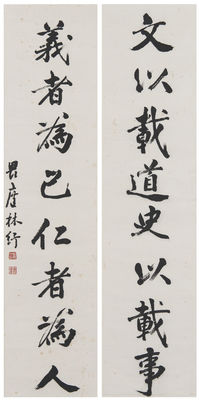 文以載道史以載事
義者為己仁者為人
畏廬林紓